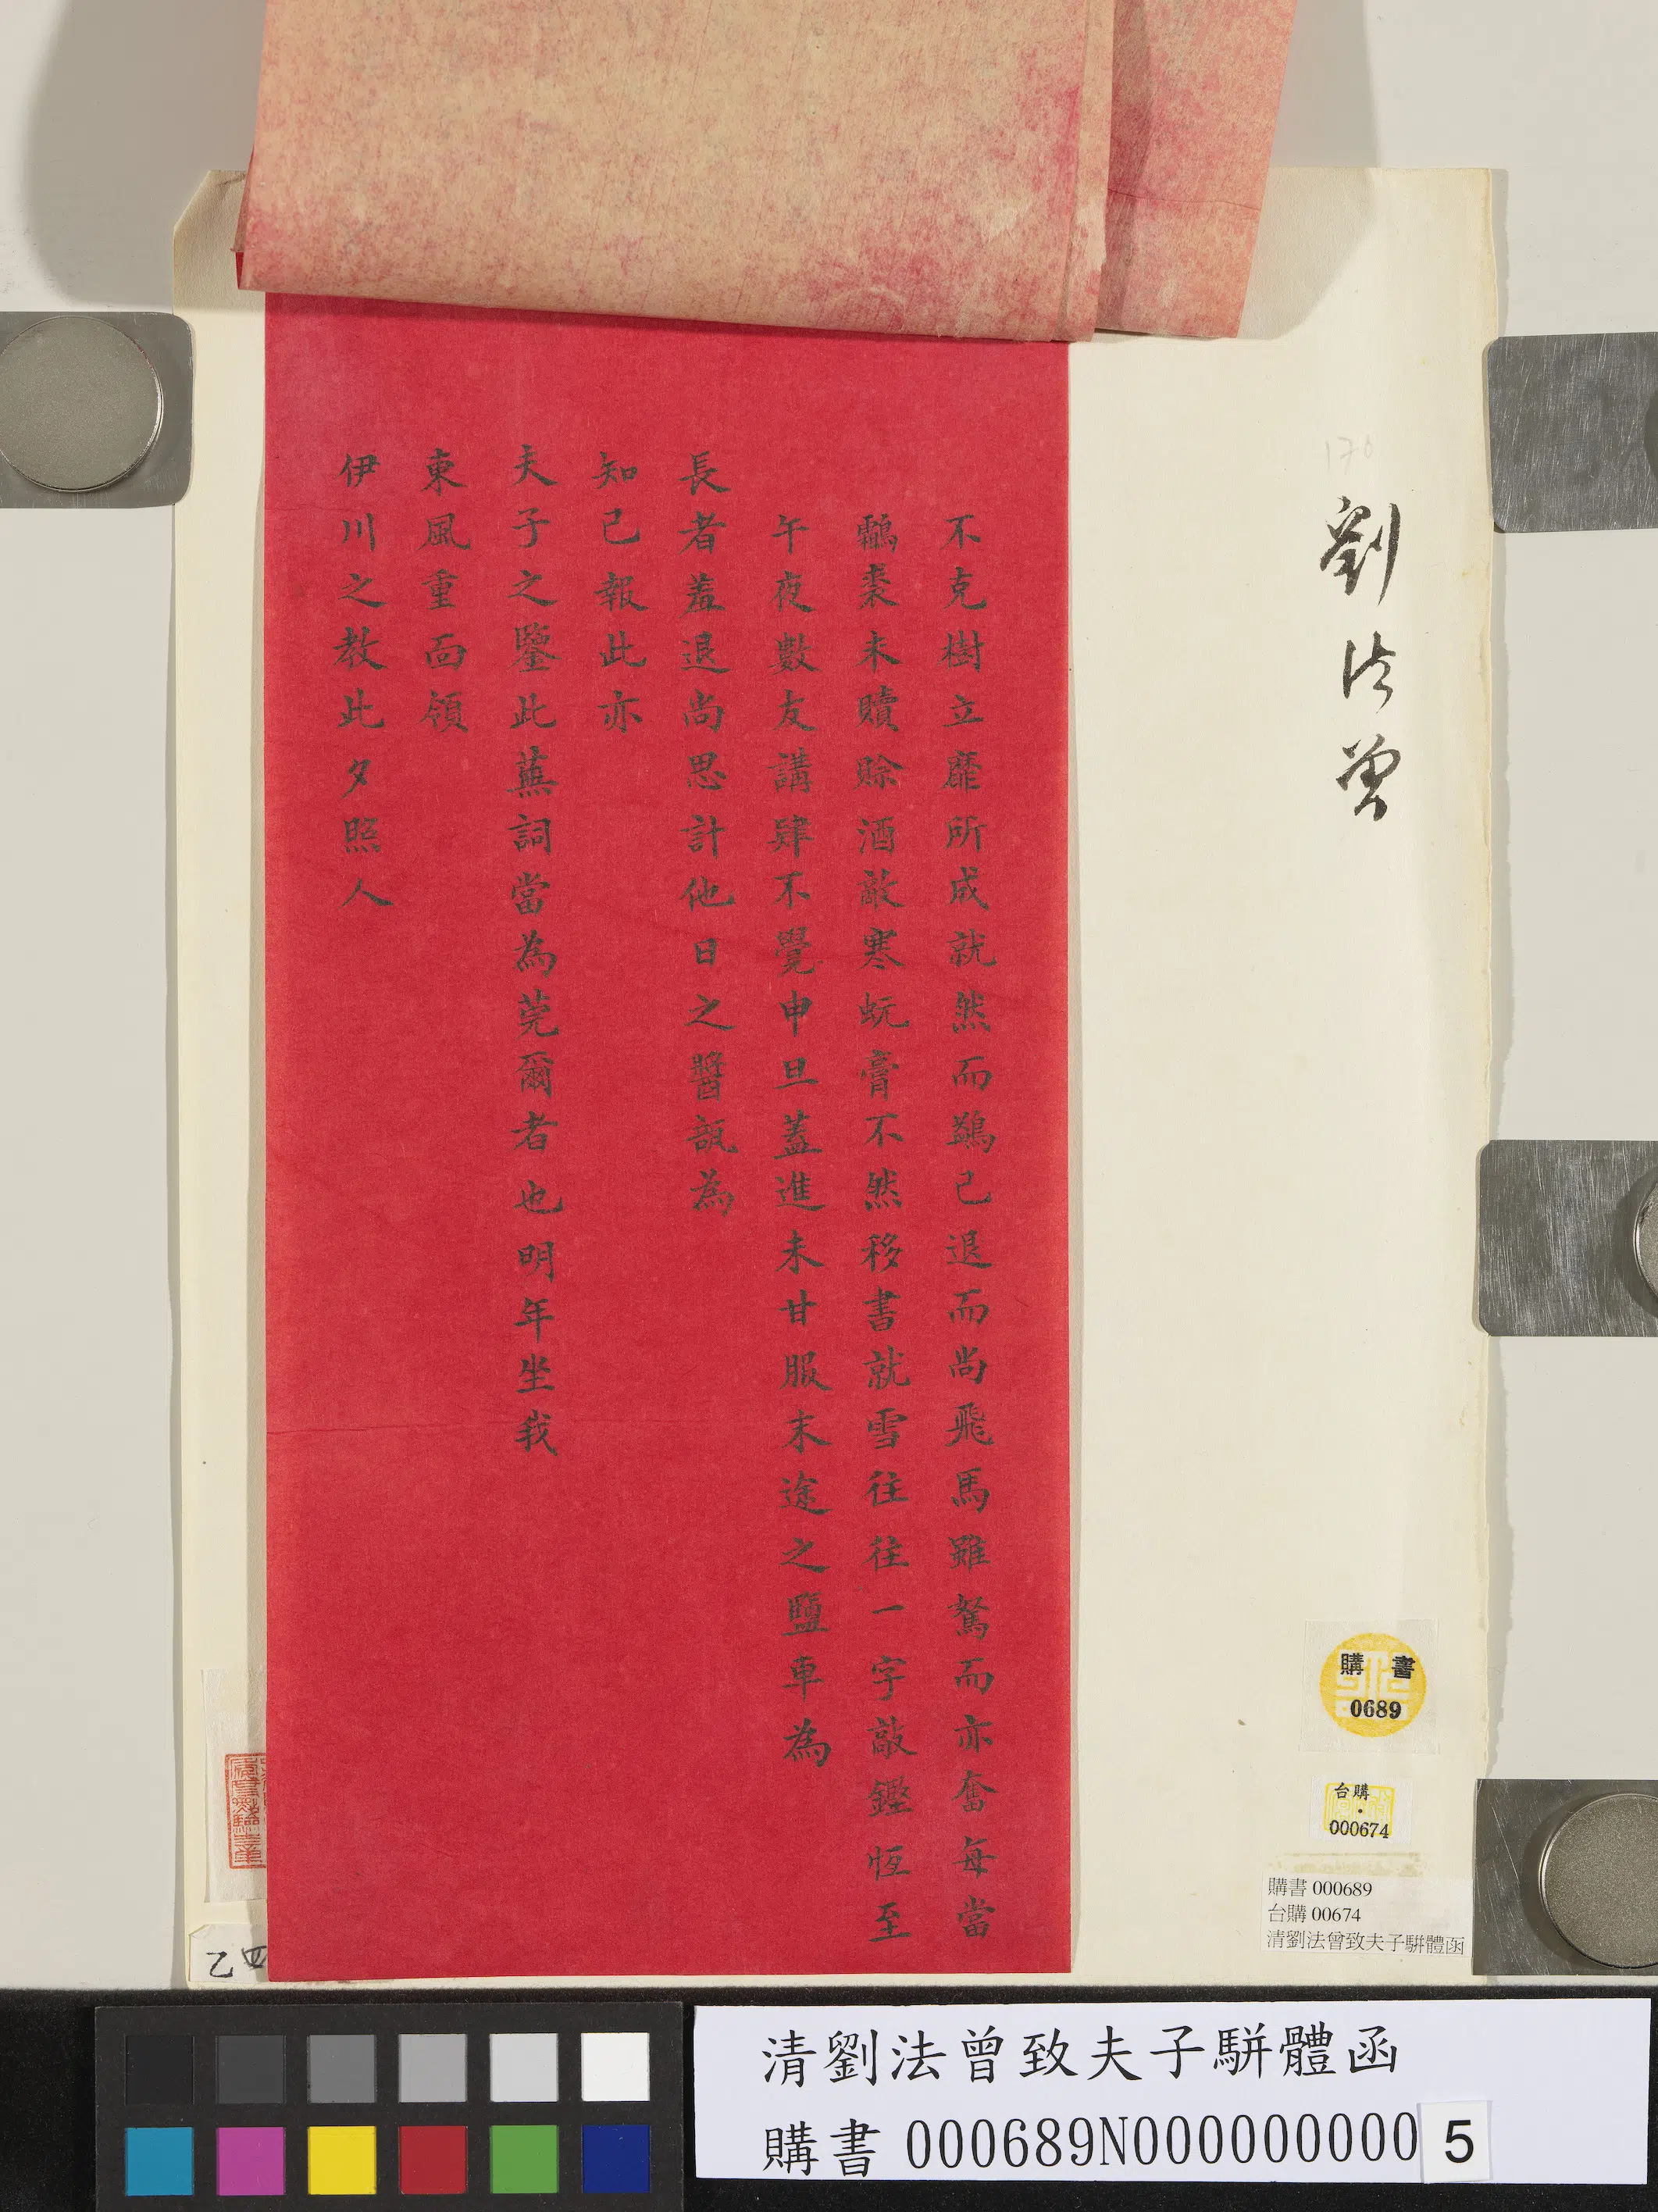 劉法曾
不克樹立靡所成就然而鷁已退而尚飛馬雖駑而亦奮每當
鷫裘未贖賒酒敵寒蚖膏不然移書就雪往往一字敲鏗恆至
午夜數友講肄不覺申旦蓋進未甘服末途之鹽車為
長者羞退尚思計他日之醬瓿為
知己報此亦
夫子之鑒此蕪詞當為莞爾者也明年坐我
東風重面領
伊川之教此夕照人
購書
0689
台購
000674
購書 000689
台購 00674
清劉法曾致夫子駢體函
乙四
清劉法曾致夫子駢體函
購書 000689N000000000 5